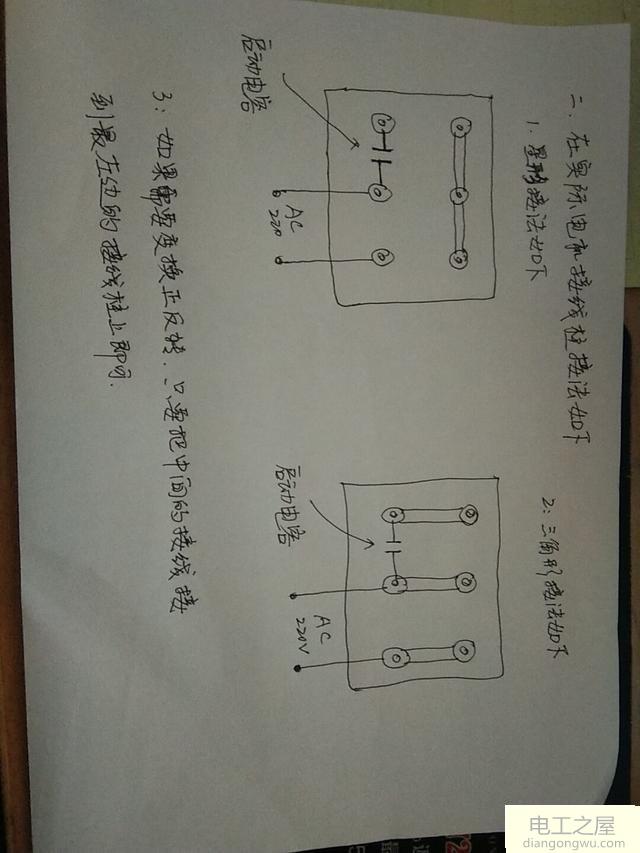 二、在实际电机接线柱接法如下
1. 星形接法如下
启动电容
AC
220
2: 三角形接法如下
启动电容
AC
220V
3: 如果需要变换正反转.只要把中间的接线接
到最左边的接线柱上即可.
电工之屋
diangongwu.com